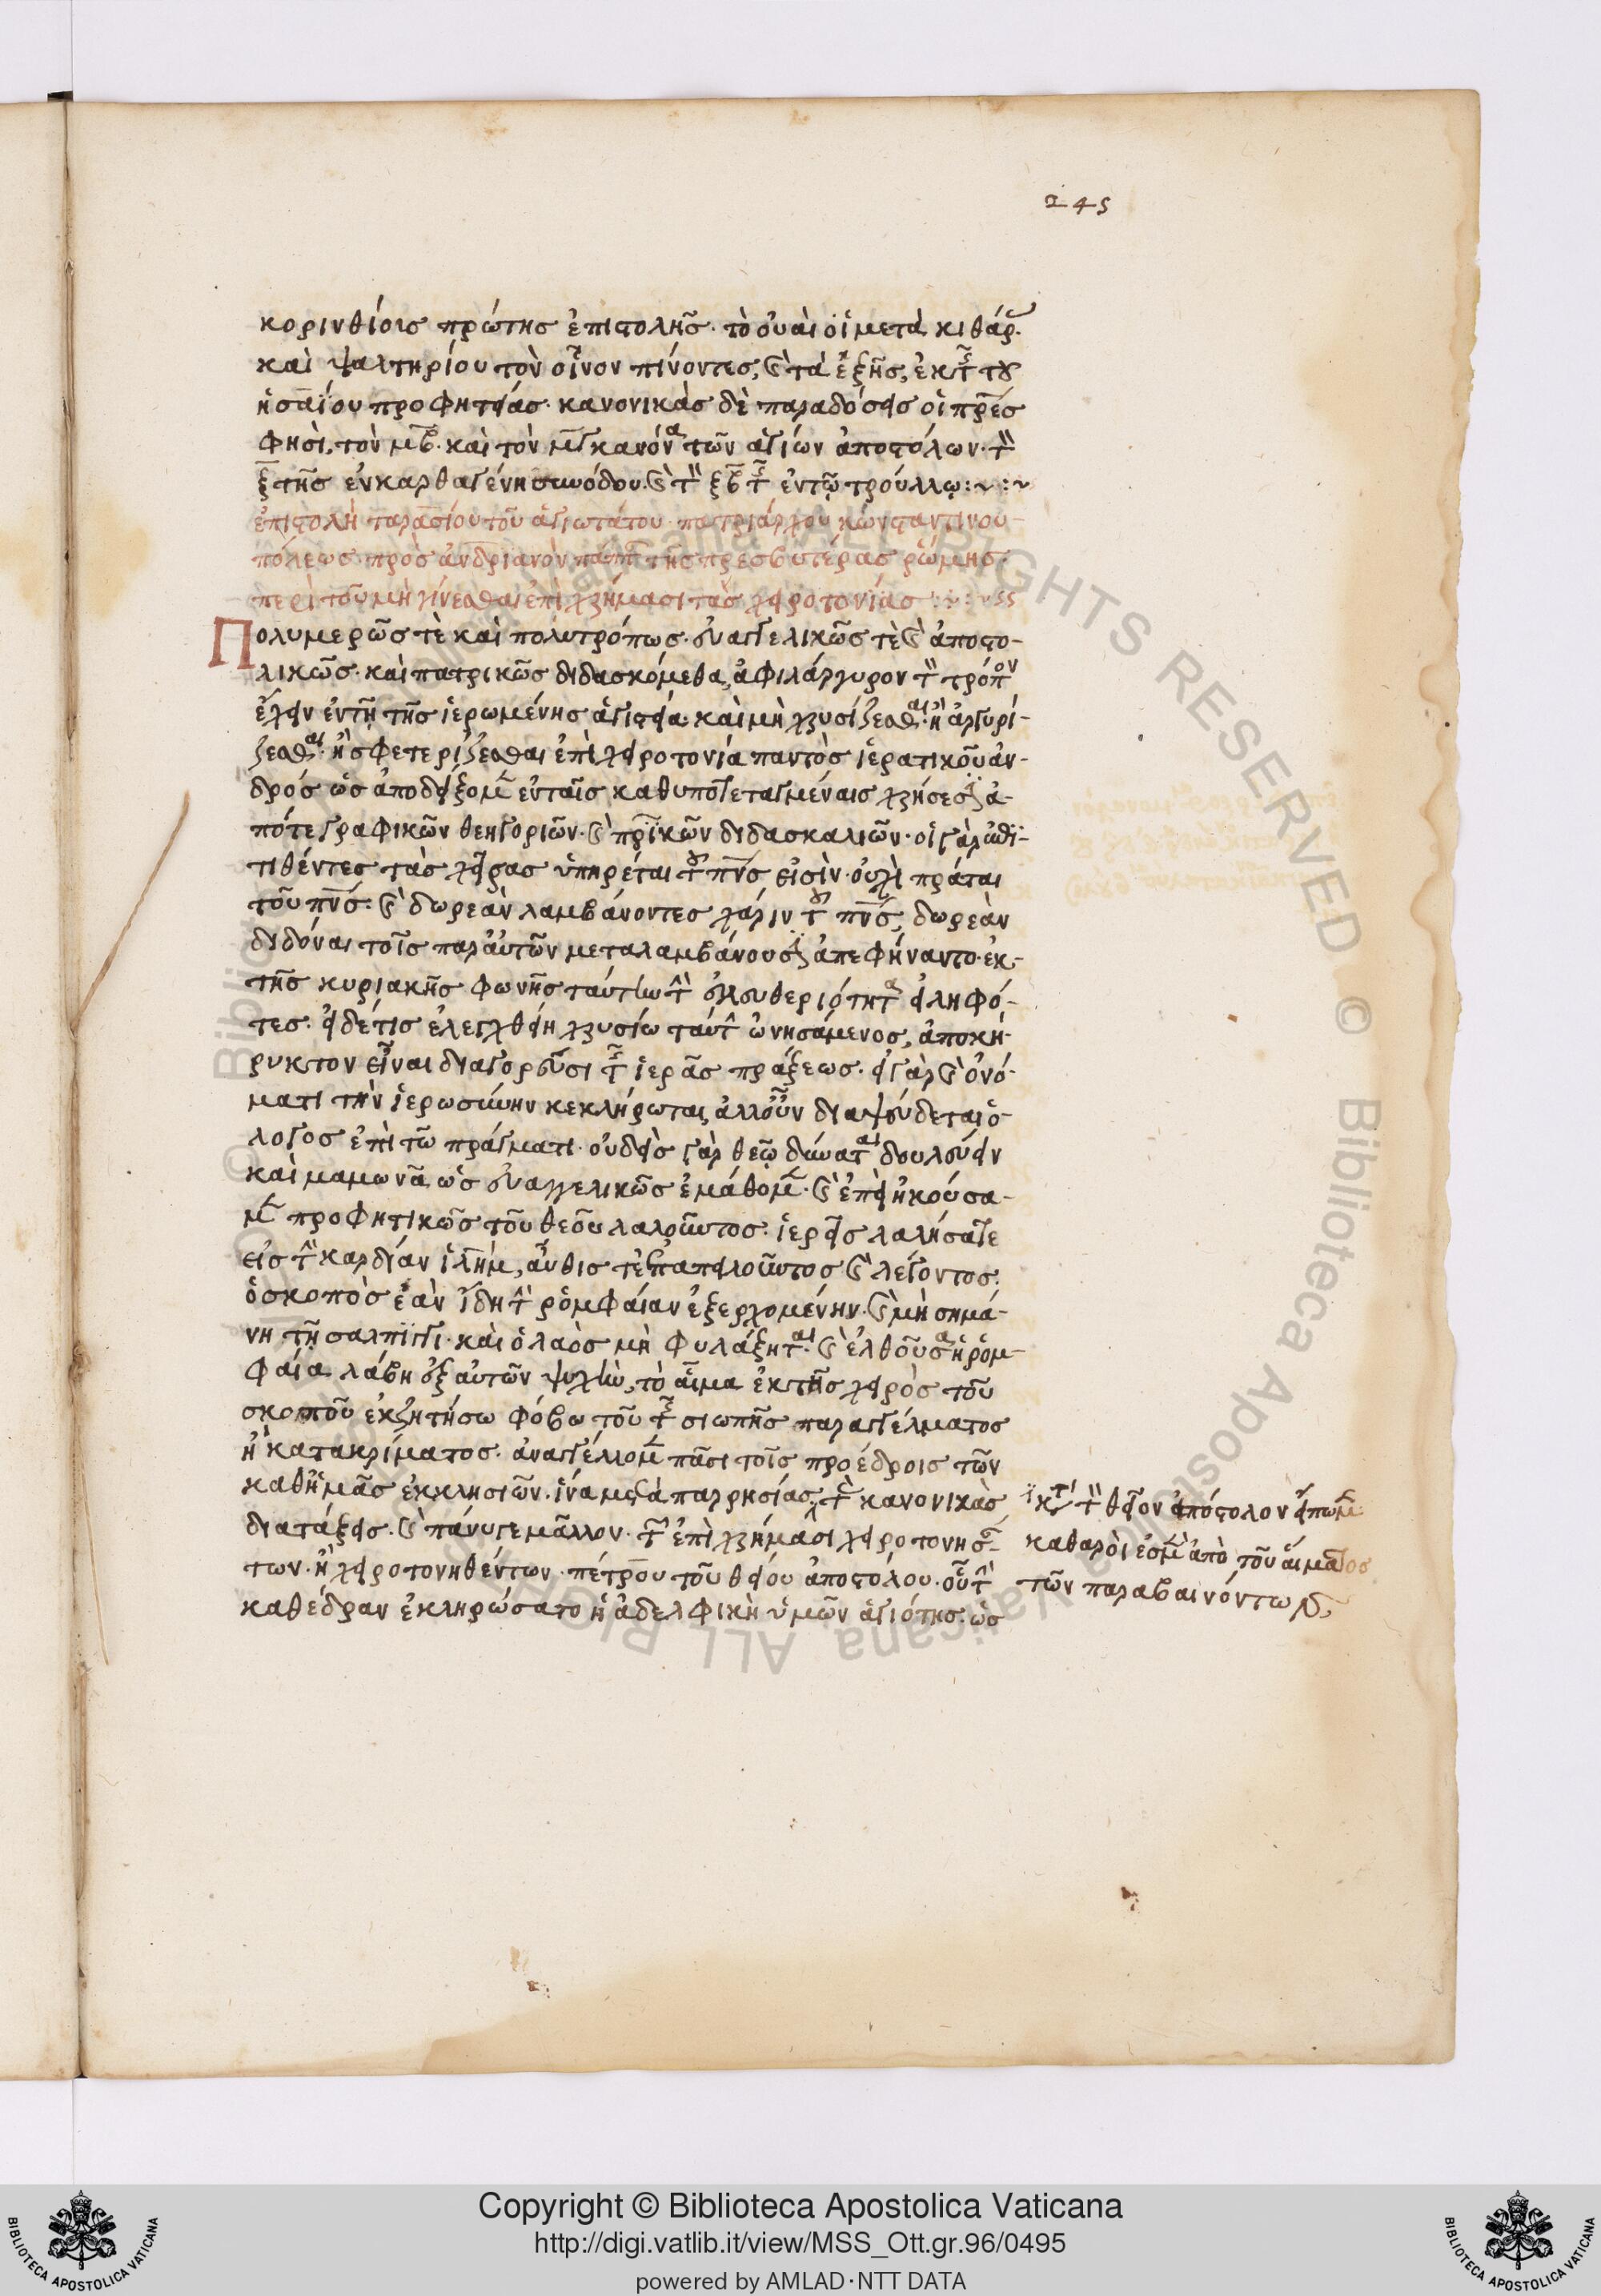 245
κορινθίοις πρώτης ἐπιστολῆς· τὸ οὐαὶ οἱ μετὰ κιθάρ.
καὶ ψαλτηρίου τὸν οἶνον πίνοντες, καὶ τὰ ἑξῆς, ἐκ τῆς του
ἡσαΐου προφητείας· κανονικὰς δὲ παραδόσεις οἱ πρεσ
φησὶ, τὸν μβ. καὶ τὸν μγ κανόνα τῶν ἁγίων ἀποστόλων· τὸν
ξ τῆς ἐν καρθαγένη συνόδου. καὶ τὸν ξβ τῆς ἐν τῷ τρούλλῳ:~:~
ἐπιστολὴ ταρασίου τοῦ ἁγιωτάτου πατριάρχου κωνσταντινου-
πόλεως πρὸς ἀνδριανὸν πάπαν τῆς πρεσβυτέρας ῥώμης·
περὶ τοῦ μὴ γίνεσθαι ἐπὶ χρήμασι τὰς χειροτονίας
Πολυμερῶς τὲ καὶ πολυτρόπως· εὐαγγελικῶς τὲ καὶ ἀποστο-
λικῶς· καὶ πατρικῶς διδασκόμεθα, ἀφιλάργυρον τὸν τρόπον
ἔχειν ἐν τῇ τῆς ἱερωμένης ἁγιστεία· καὶ μὴ χρυσίζεσθαι· ἢ ἀργυρί-
ζεσθαι· ἢ σφετερίζεσθαι ἐπὶ χειροτονία παντὸς ἱερατικοῦ ἀν-
δρός ὡς ἀποδείξομεν ἐν ταῖς καθυποτεταγμέναις χρήσεσιν ἀ-
πό τε γραφικῶν θεηγοριῶν· καὶ πρικῶν διδασκαλιῶν· οἱ γὰρ ἐπι-
τιθέντες τὰς χεῖρας ὑπηρέται τοῦ πνς εἰσὶν· οὐχὶ πράται
τοῦ πνς· καὶ δωρεὰν λαμβάνοντες χάριν τοῦ πνς, δωρεὰν
διδόναι τοῖς παρ αὐτῶν μεταλαμβάνουσιν ἀπεφήναντο· ἐκ
τῆς κυριακῆς φωνῆς ταύτην τὴν ἐλευθεριότητα εἰληφό-
τες· εἰ δέ τις ἐλεγχθείη χρυσίω ταύτην ὠνησάμενος, ἀποκή-
ρυκτον εἶναι διαγορεύσι τῆς ἱερᾶς πράξεως· εἰ γὰρ καὶ ὀνό-
ματι τὴν ἱερωσύνην κεκλήρωται, ἀλλ οὖν διαψεύδεται ὁ
λόγος ἐπὶ τῶ πράγματι· οὐδεὶς γὰρ θεῷ δύναται δουλεύειν
καὶ μαμωνᾶ, ὡς εὐαγγελικῶς ἐμάθομεν· καὶ ἐπεὶ ἠκούσα-
μεν προφητικῶς τοῦ θεοῦ λαλοῦντος· ἱερεῖς λαλήσατε
εἰς τὴν καρδίαν ἱλήμ, αὖθις τὲ ἐπαπειλοῦντος καὶ λέγοντος·
ὁ σκοπὸς ἐὰν ἴδη τὴν ῥομφαίαν ἐξερχομένην· καὶ μὴ σημά-
νη τῇ σαλπιγγι· καὶ ὁ λαὸς μὴ φυλάξηται· καὶ ἐλθοῦσα ἡ ῥομ-
φαία λάβη ἐξ αὐτῶν ψυχὴν, τὸ αἷμα ἐκ τῆς χειρὸς τοῦ
σκοποῦ ἐκζητήσω φόβω τοῦ τῆς σιωπῆς παραγγέλματος
ἢ κατακρίματος· ἀναγγέλλομεν πᾶσι τοῖς προέδροις τῶν
καθ ἡμᾶς ἐκκλησιῶν· ἵνα μετὰ παρρησίας τὰς κανονικὰς
διατάξεις· καὶ πάνυ γε μᾶλλον· τῶν ἐπὶ χρήμασι χειροτονησάν-
των· ἢ χειροτονηθέντων· πέτρου τοῦ θείου ἀποστόλου· οὗ τὴν
καθέδραν ἐκληρώσατο ἡ ἀδελφικὴ ὑμῶν ἁγιότης· ὡς
κατὰ τὸν θεῖον ἀπόστολον εἴπωμεν
καθαροὶ ἐσμὲν ἀπὸ τοῦ αἵματος
τῶν παραβαινόντων
Copyright © Biblioteca Apostolica Vaticana
http://digi.vatlib.it/view/MSS_Ott.gr.96/0495
powered by AMLAD·NTT DATA